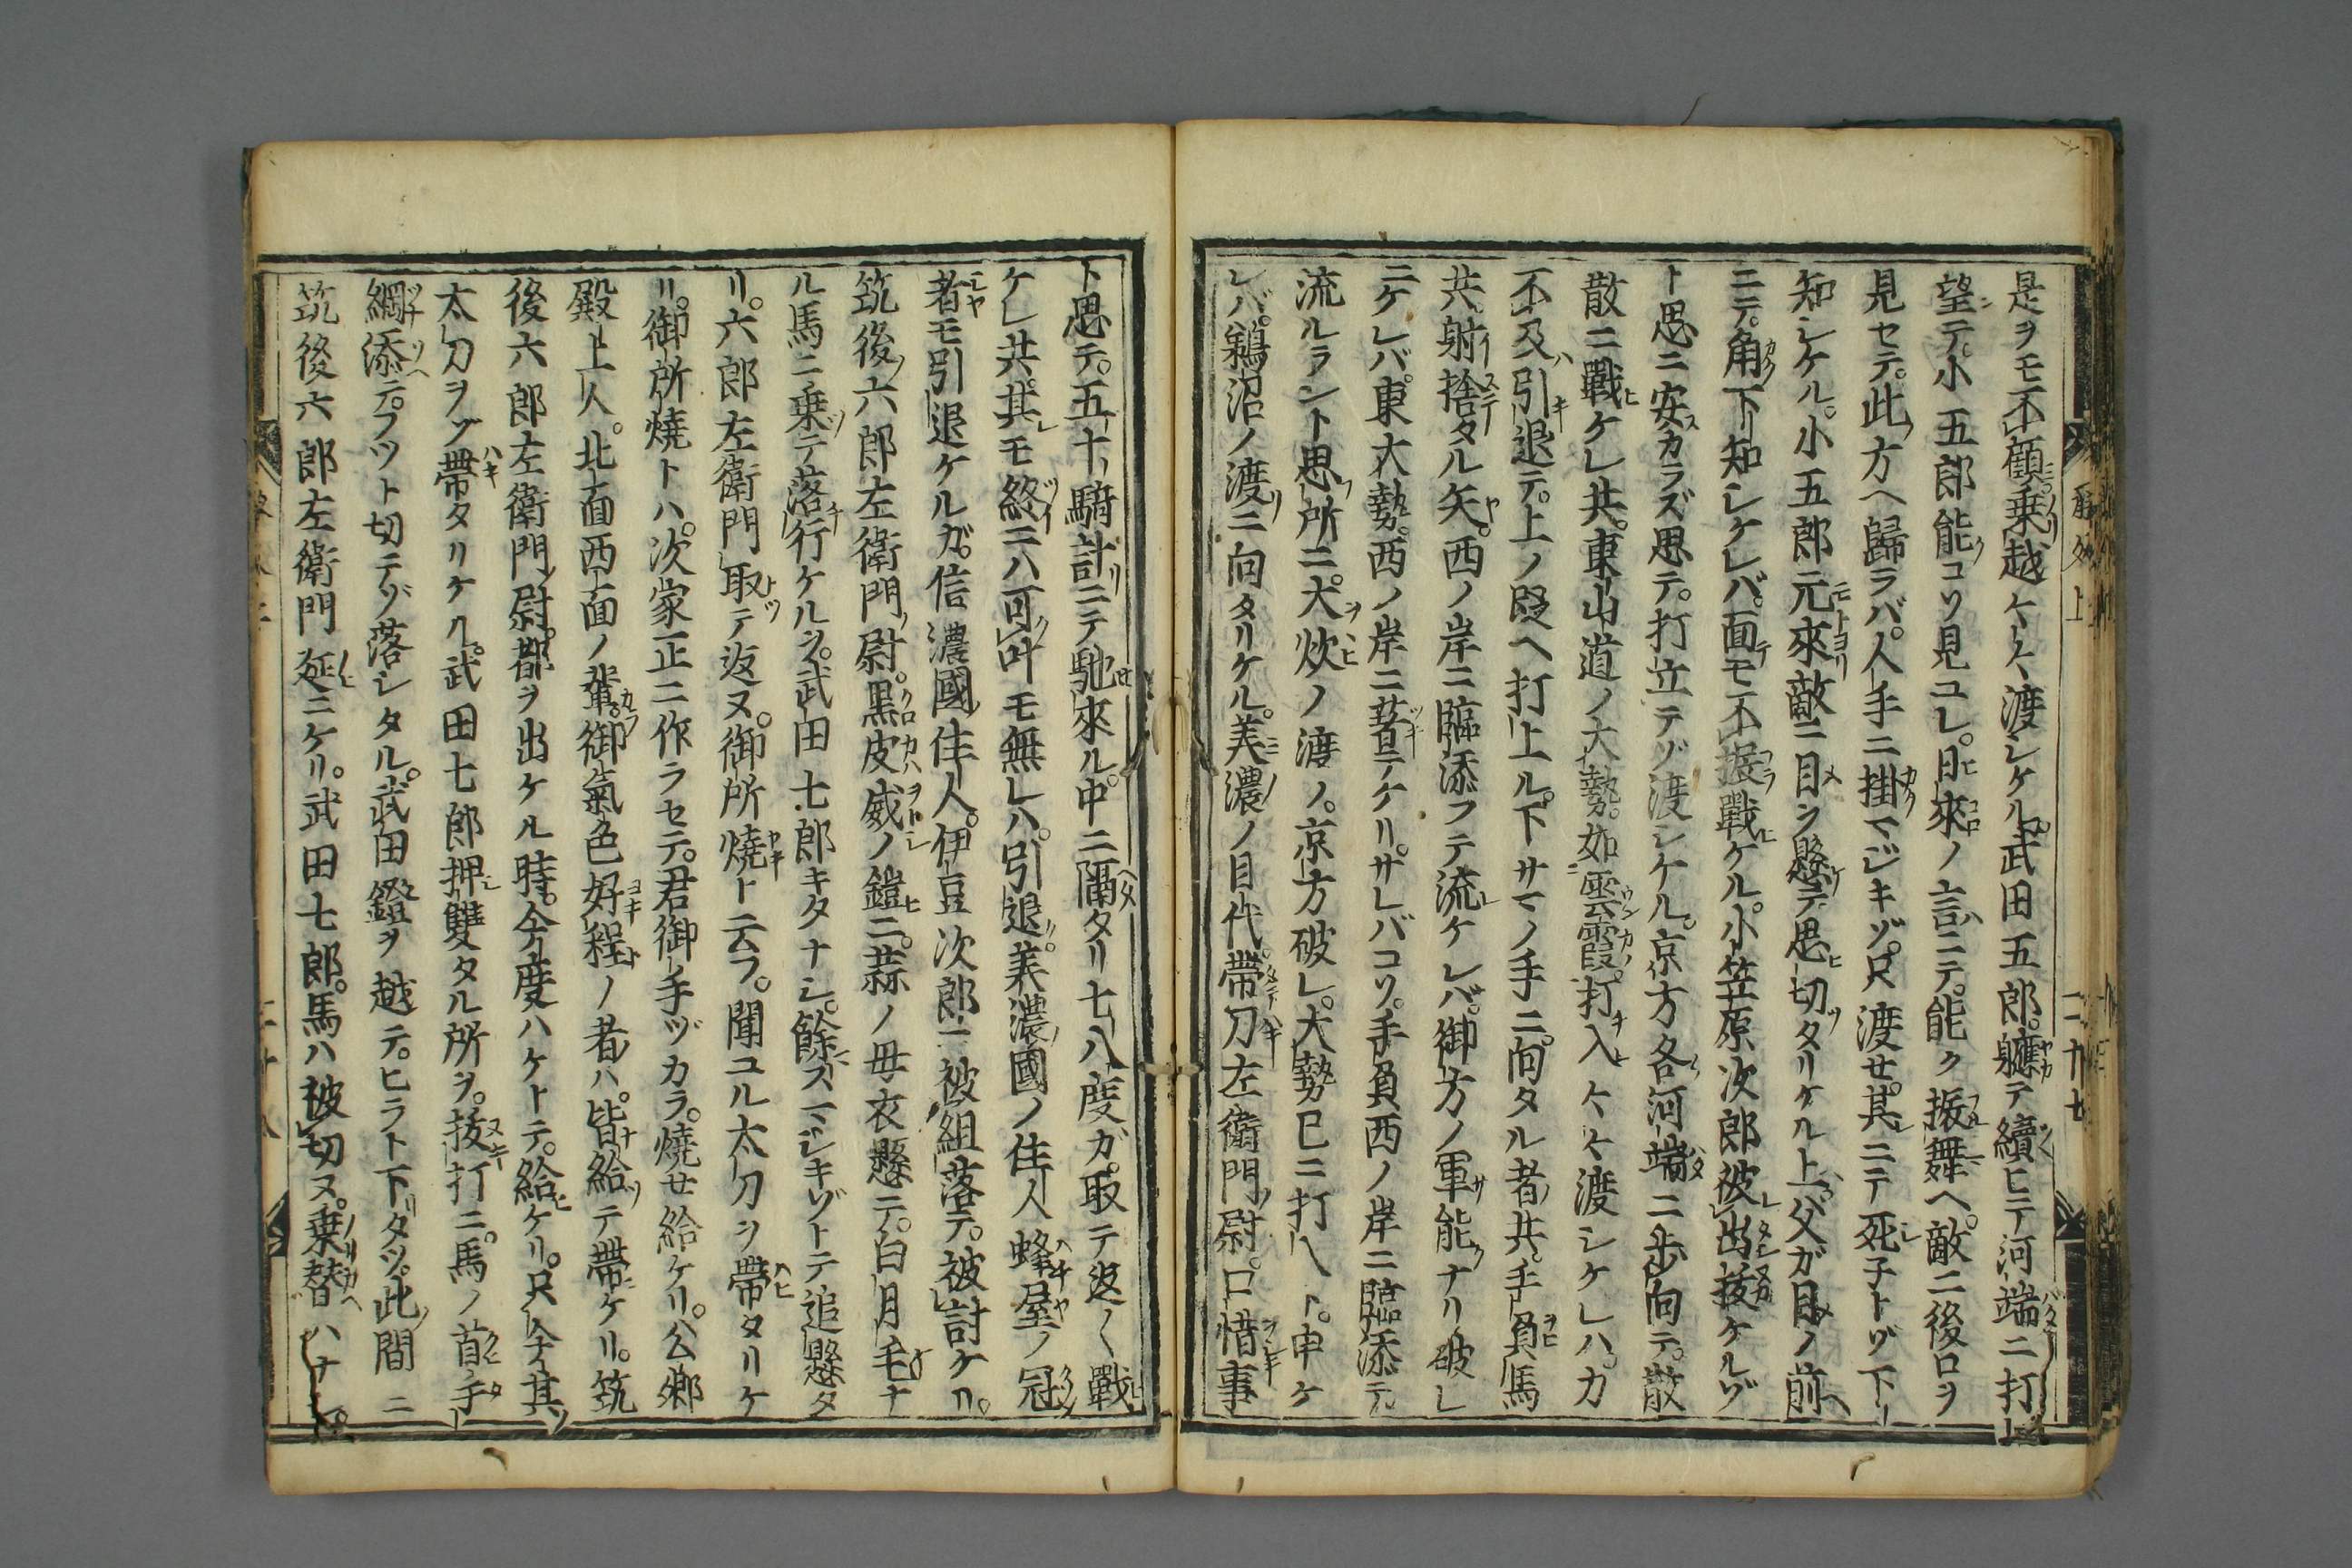 是ヲモ不顧乗越ケヽ渡シケル。武田五郎。軈テ續ヒテ河端ニ打上
望テ。小五郎能コソ見ユレ。日來ノ言ニテ。能ク振舞ヘ。敵ニ後ロヲ
見セテ。此方ヘ歸ラバ。人手ニ掛マジキゾ。只渡セ。其ニテ死子トゾ下
知シケル。小五郎元來敵ニ目ヲ懸テ思切タリケル上。父ガ目ノ前
ニテ。角下知シケレバ。面モ不振戰ケル。小笠原次郎被出抜ケルゾ
ト思ニ安カラズ思テ。打立テゾ渡シケル。京方各河端ニ歩向テ。散
散ニ戰ケレ共。東山道ノ大勢。如雲霞打入ケヽ渡シケレハ。力
不及引退テ。上ノ段ヘ打上ル。下サマノ手ニ。向タル者共。手負馬
共。射捨タル矢。西ノ岸ニ臨添フテ流ケレバ。御方ノ軍能ナリ破レ
ニケレバ。東大勢。西ノ岸ニ著テケリ。サレバコソ。手負西ノ岸ニ臨添テ
流ルラント思所ニ。大炊ノ渡ノ。京方破レ。大勢已ニ打入ト。申ケ
レバ。鵜沼ノ渡ニ向タリケル。美濃ノ目代。帶刀左衛門尉。口惜事
ト思テ。五十騎計ニテ馳來ル。中ニ隔タリ七八度ガ。取テ返〱戰
ケレ共。其モ終ニハ可叶モ無レハ。引退。美濃國ノ住人蜂屋ノ冠
者モ引退ケルガ。信濃國住人。伊豆次郎ニ被組落テ。被討ケリ。
筑後六郎左衛門尉。黒皮威ノ鎧ニ。蒜ノ母衣懸テ。白月毛ナ
ル馬ニ乗テ落行ケルヲ。武田七郎キタナシ。餘スマジキゾトテ追懸タ
リ。六郎左衛門取テ返ヌ。御所燒ト云フ。聞ユル太刀ヲ帶タリケ
リ。御所燒トハ。次家正ニ作ラセテ。君御手ヅカラ。燒セ給ケリ。公卿
殿上人。北面西面ノ輩。御氣色好程ノ者ハ。皆給テ帶ケリ。筑
後六郎左衛門尉。都ヲ出ケル時。今度ハケトテ。給ケリ。只今其
太刀ヲゾ帶タリケル。武田七郎押雙タル所ヲ。抜打ニ。馬ノ首手
綱添テ。フツト切テゾ落シタル。武田鐙ヲ越テ。ヒラト下タツ。此間ニ
筑後六郎左衛門延ニケリ。武田七郎。馬ハ被切ヌ。乗替ハナ